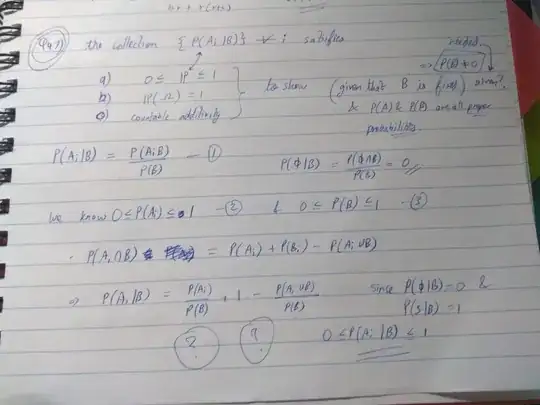 Q47) the collection { P(A_i|B) } ∀ i satisfies
needed
⇒ P(B) ≠ 0
a) 0 ≤ P ≤ 1
b) P(Ω) = 1
c) countable additivity
to show (given that B is fixed)
& P(A) & P(B) are all proper probabilities.
P(A_i|B) = P(A_i B) / P(B) — ①
P(ϕ|B) = P(ϕ∩B) / P(B) = 0
We know 0 ≤ P(A_i) ≤ 1 — ② & 0 ≤ P(B) ≤ 1 — ③
· P(A_i ∩ B) = P(A_i) + P(B) − P(A_i ∪ B)
⇒ P(A_i|B) = P(A_i) / P(B) + 1 − P(A_i ∪ B) / P(B)
since P(ϕ|B) = 0 &
P(S|B) = 1
? ?
0 ≤ P(A_i|B) ≤ 1